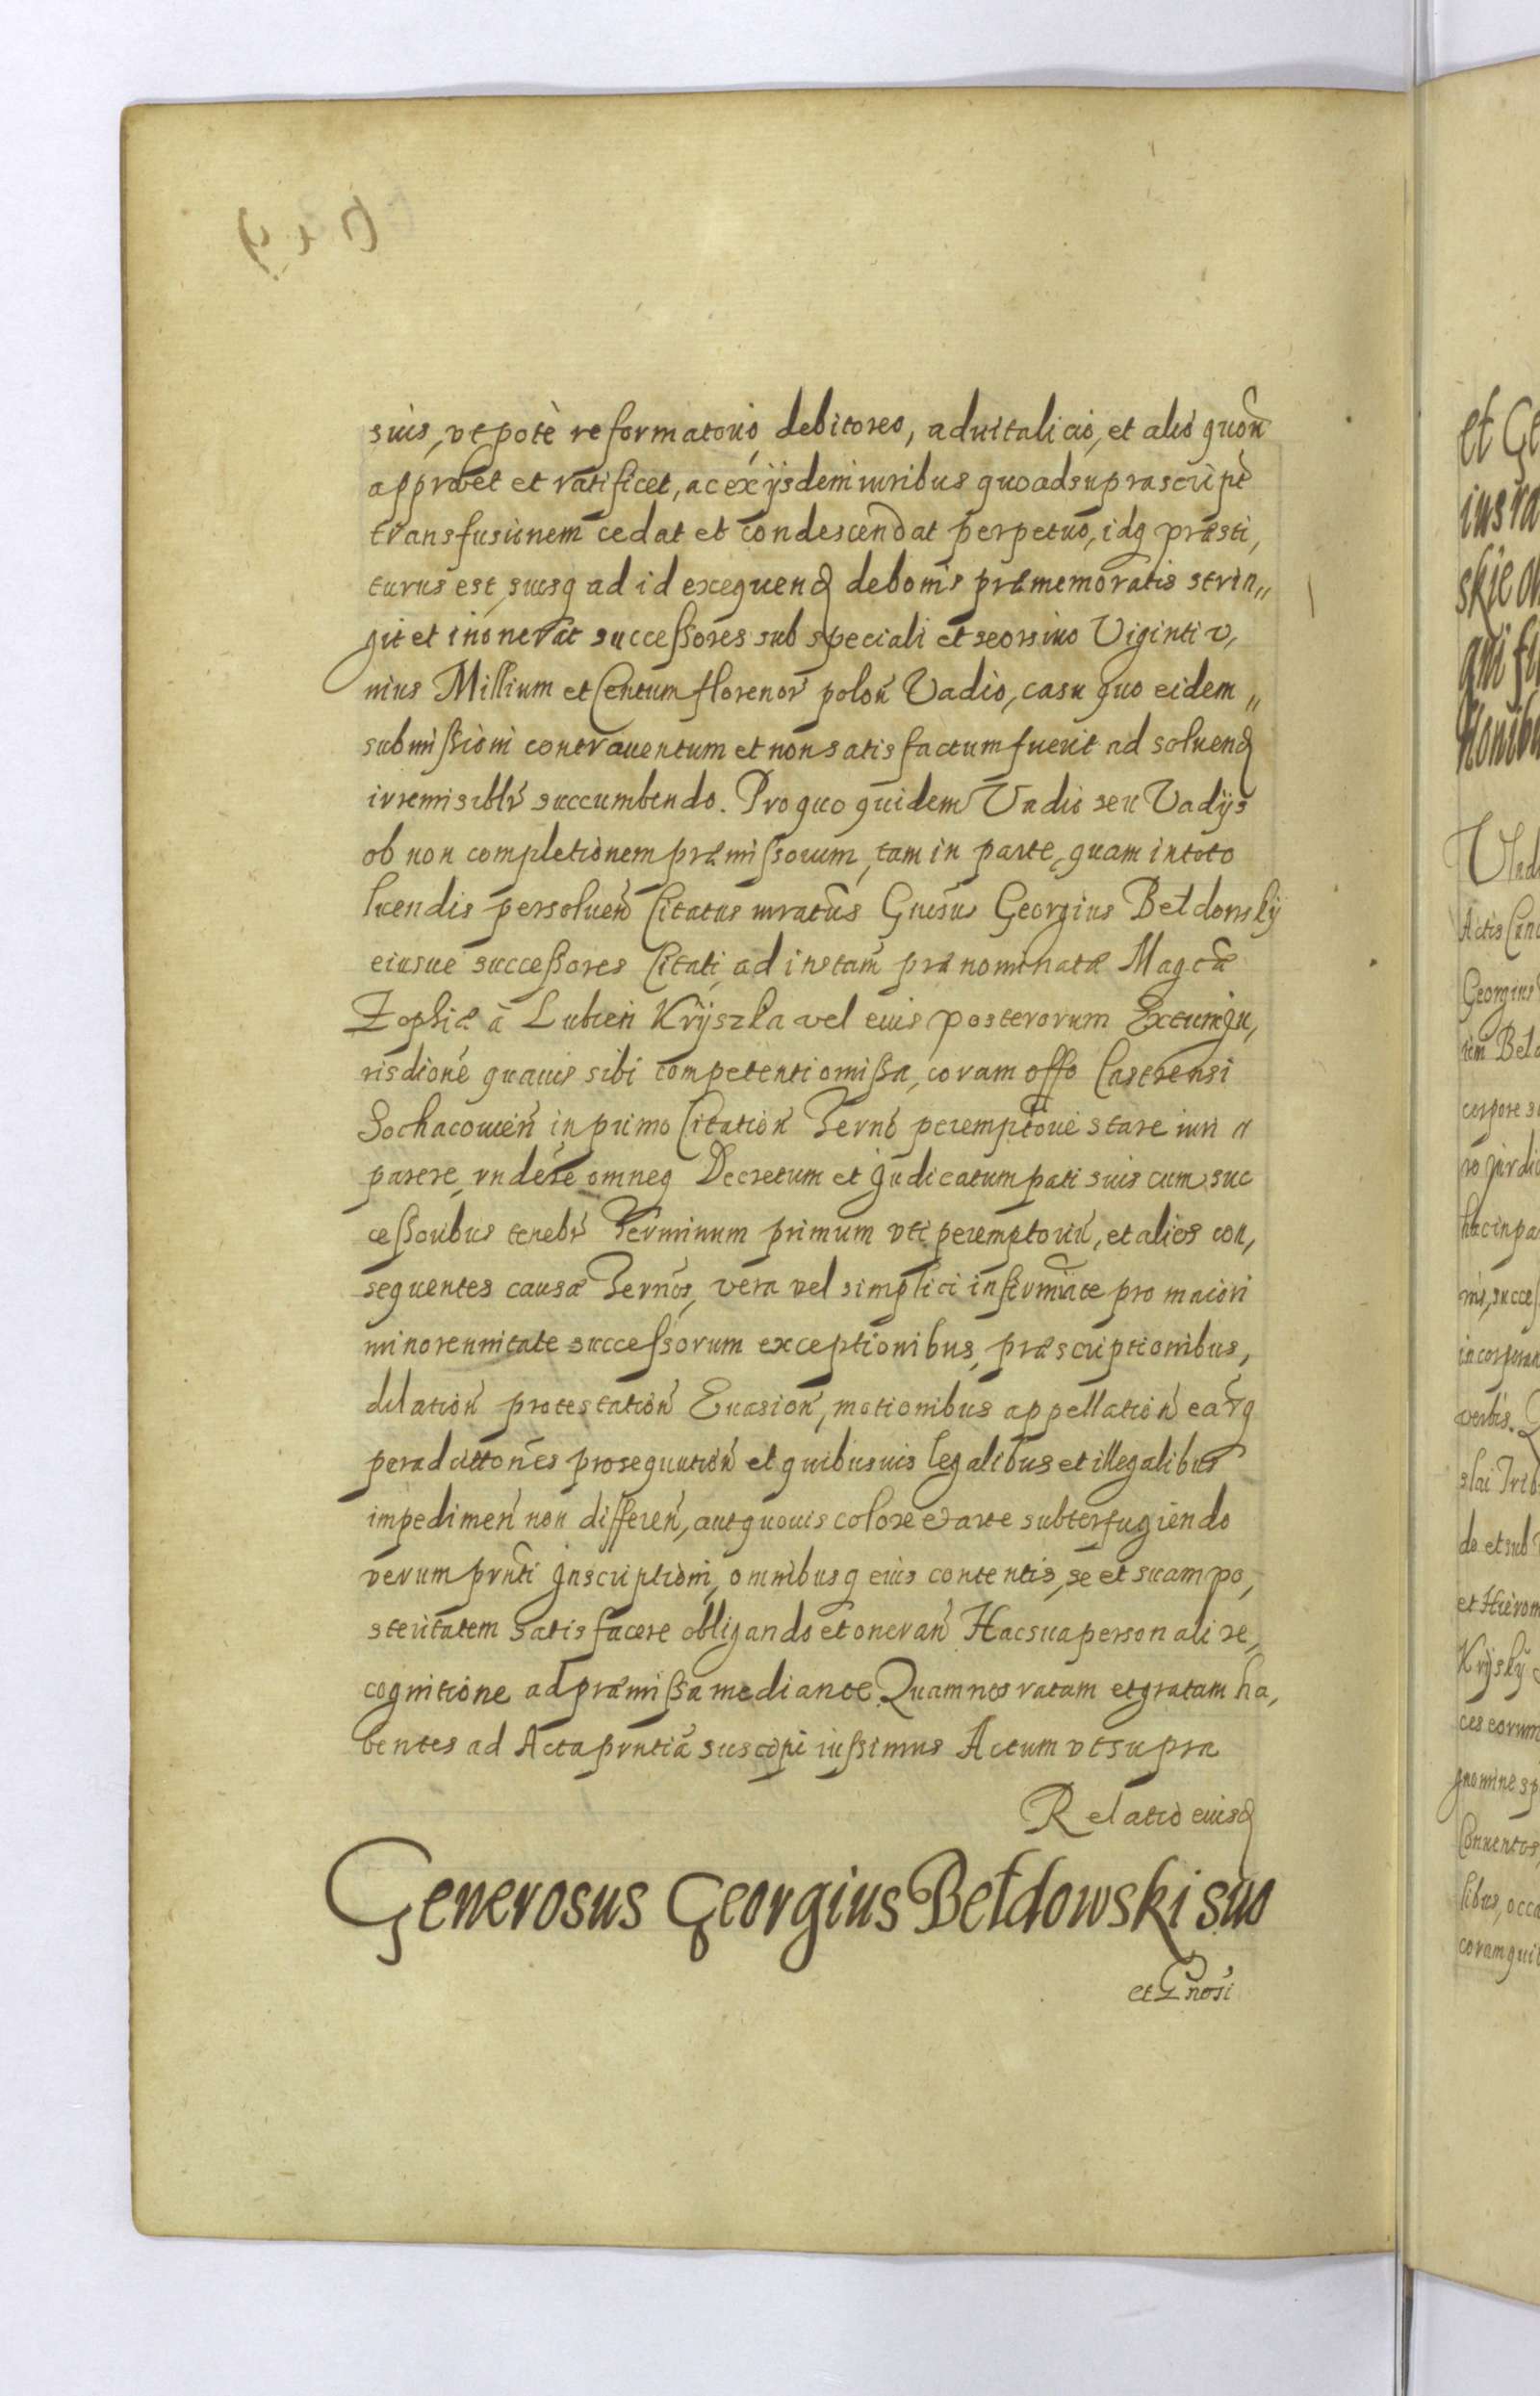 suis, vt pote reformatorio, debitoreo, aduitalicio, et alio quoń
approbet et ratificet, ac ex ijsdem iuribus quoad suprascript
transfusiinem cedat et condescendat perpetuo, idq præsti,
turus est, suosq ad id exequend de bonis præmemoratis strin„
git et inonerat successores sub speciali et seorsiuo Viginti v,
nius Millium et Centum florenor polon Vadio, casu quo eidem„
submissioni contrauentum et non satisfactum fuerit ad soluend
irremisiblr succumbendo. Pro quo quidem Vadio seu Vadijs
ob non completionem præmissorum, tam in parte, quam in toto
luendis persoluend Citatus iuratus Gnosus Georgius Bełdowsky
eiusue successores Citati, ad instam prænominatæ Magcæ
Zophiæ à Lubień Kryszka vel eius posterorum Extunc Ju,
risdione quauis sibi competenti omissa, coram offo Castrensi
Sochacouień in primo Citation Terno peremptorie stare iuri a
parere, vndere omneq Decretum et Judicatum pati suis cum suc
cessoribus tenebr Terminum primum vti peremptoriu, et alios con,
sequentes causæ Ternos, vera vel simplici infirmitate pro maiori
minorennitate successorum exceptionibus, præscriptionibus,
dilation protestation Euasion, motionibus appellation earq
peradcittones prosequution et quibusuis legalibus et illegalibus
impedimen non differen, aut quouis colore et arte subterfugiendo
verum prnti Jnscriptioni, omnibusq eius contentis, se et suam po,
steritatem satisfacere obligando et oneran Hac sua personali re,
cognitione ad præmissa mediante Quam nos ratam et gratam ha,
bentes ad Acta prntia suscipi iussimus Actum vt supra
Relatio eiusd
Generosus Georgius Bełdowski suo
et Gnosi